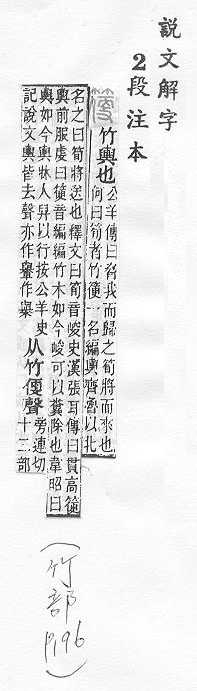 說文解字
2段注本
箯
竹輿也
公羊傳曰脅我而歸之筍將而來也
何曰筍者竹箯一名編輿齊魯以北
名之曰筍將送也釋文曰筍音峻史漢張耳傳曰貫高箯
輿前服虔曰箯音編編竹木如今峻可以糞除也韋昭曰
輿如今輿牀人舁以行按公羊史
記說文輿皆去聲亦作轝作
从竹便聲
旁連切
十二部
(竹部 P.196)